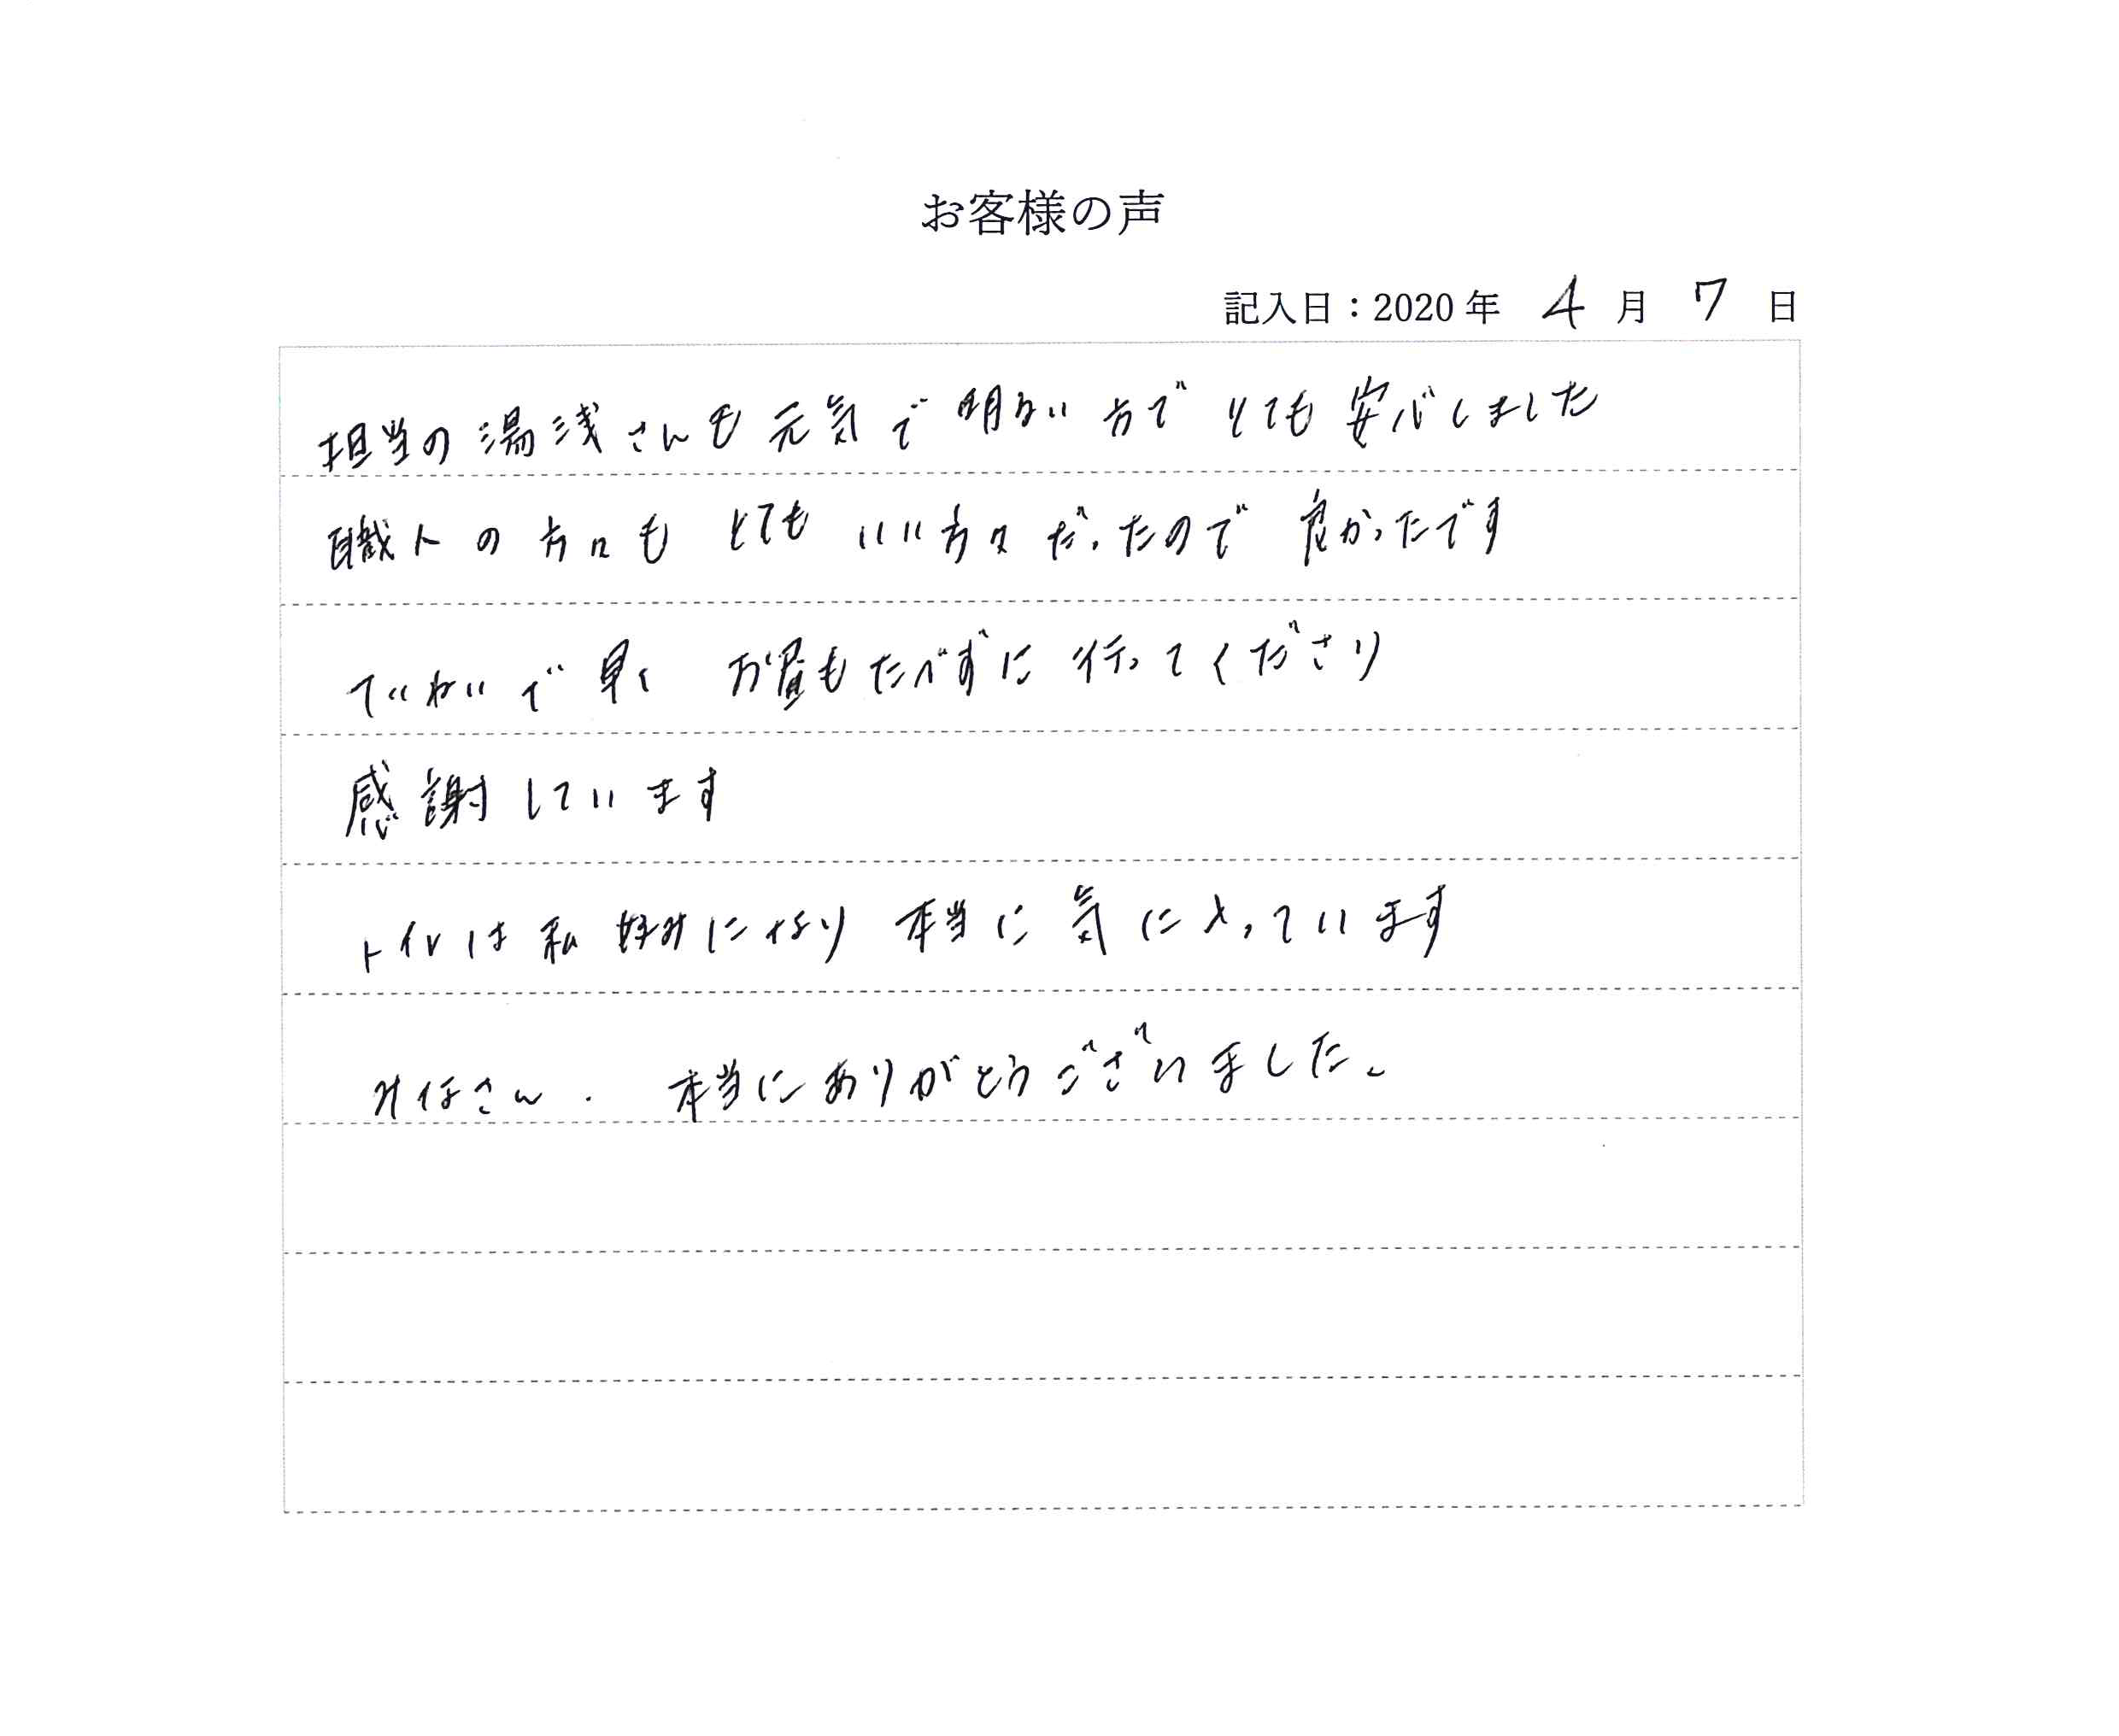 お客様の声
記入日：2020年 4月 7日
担当の湯浅さんも元気で明るい方でとても安心しました
職人の方々もとてもいい方々だったので良かったです
ていねいで早くお昼もたべずに行ってくださり
感謝しています
トイレは私好みになり本当に気に入っています
みなさん、本当にありがとうございました。